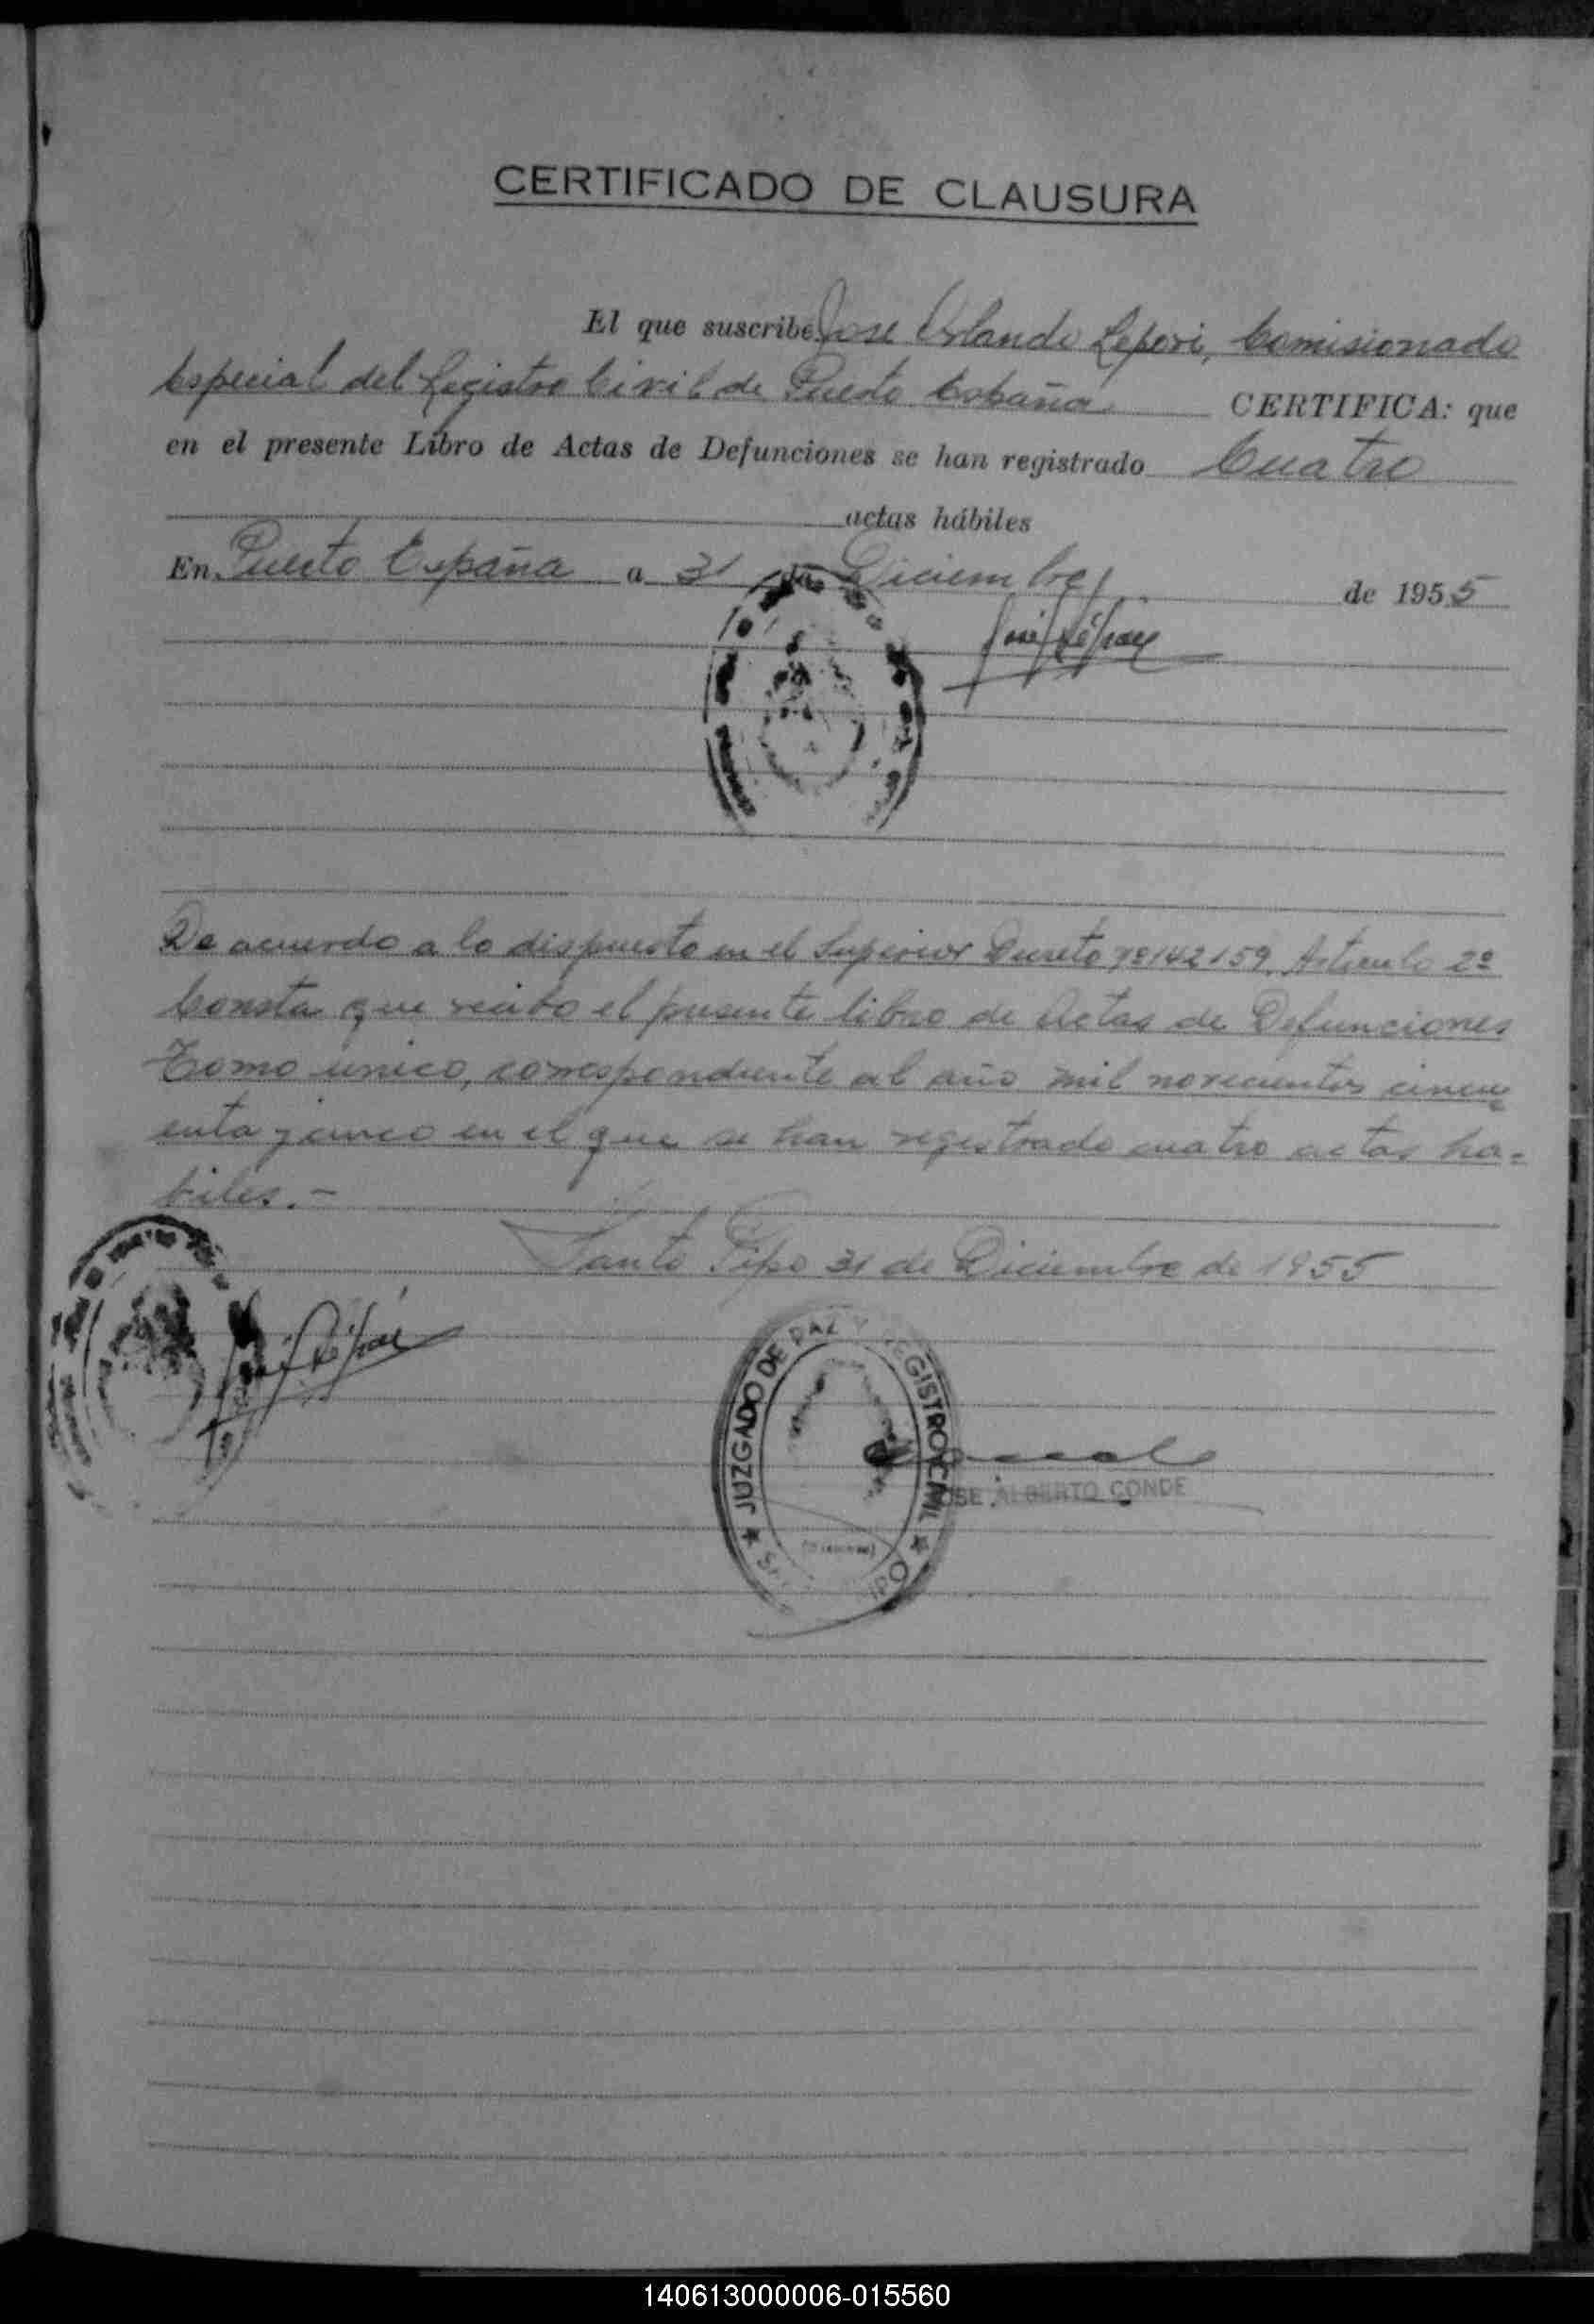 CERTIFICADO DE CLAUSURA
El que suscribe Jose Orlando Lepori, Comisionado
Especial del Registro Civil de Puerto España CERTIFICA: que
en el presente Libro de Actas de Defunciones se han registrado Cuatro
actas hábiles
En Puerto España a 31 de Diciembre de 1955
De acuerdo a lo dispuesto en el Superior Decreto Nº 142159 Articulo 2º
Consta que recibo el presente libro de Actas de Defunciones
Tomo unico, correspondiente al año mil novecientos cincu
enta y cinco en el que se han registrado cuatro actas ha=
biles.-
Santo Pipo 31 de Diciembre de 1955
JUZGADO DE PAZ Y REGISTRO CIVIL
JOSE ALBERTO CONDE
140613000006-015560